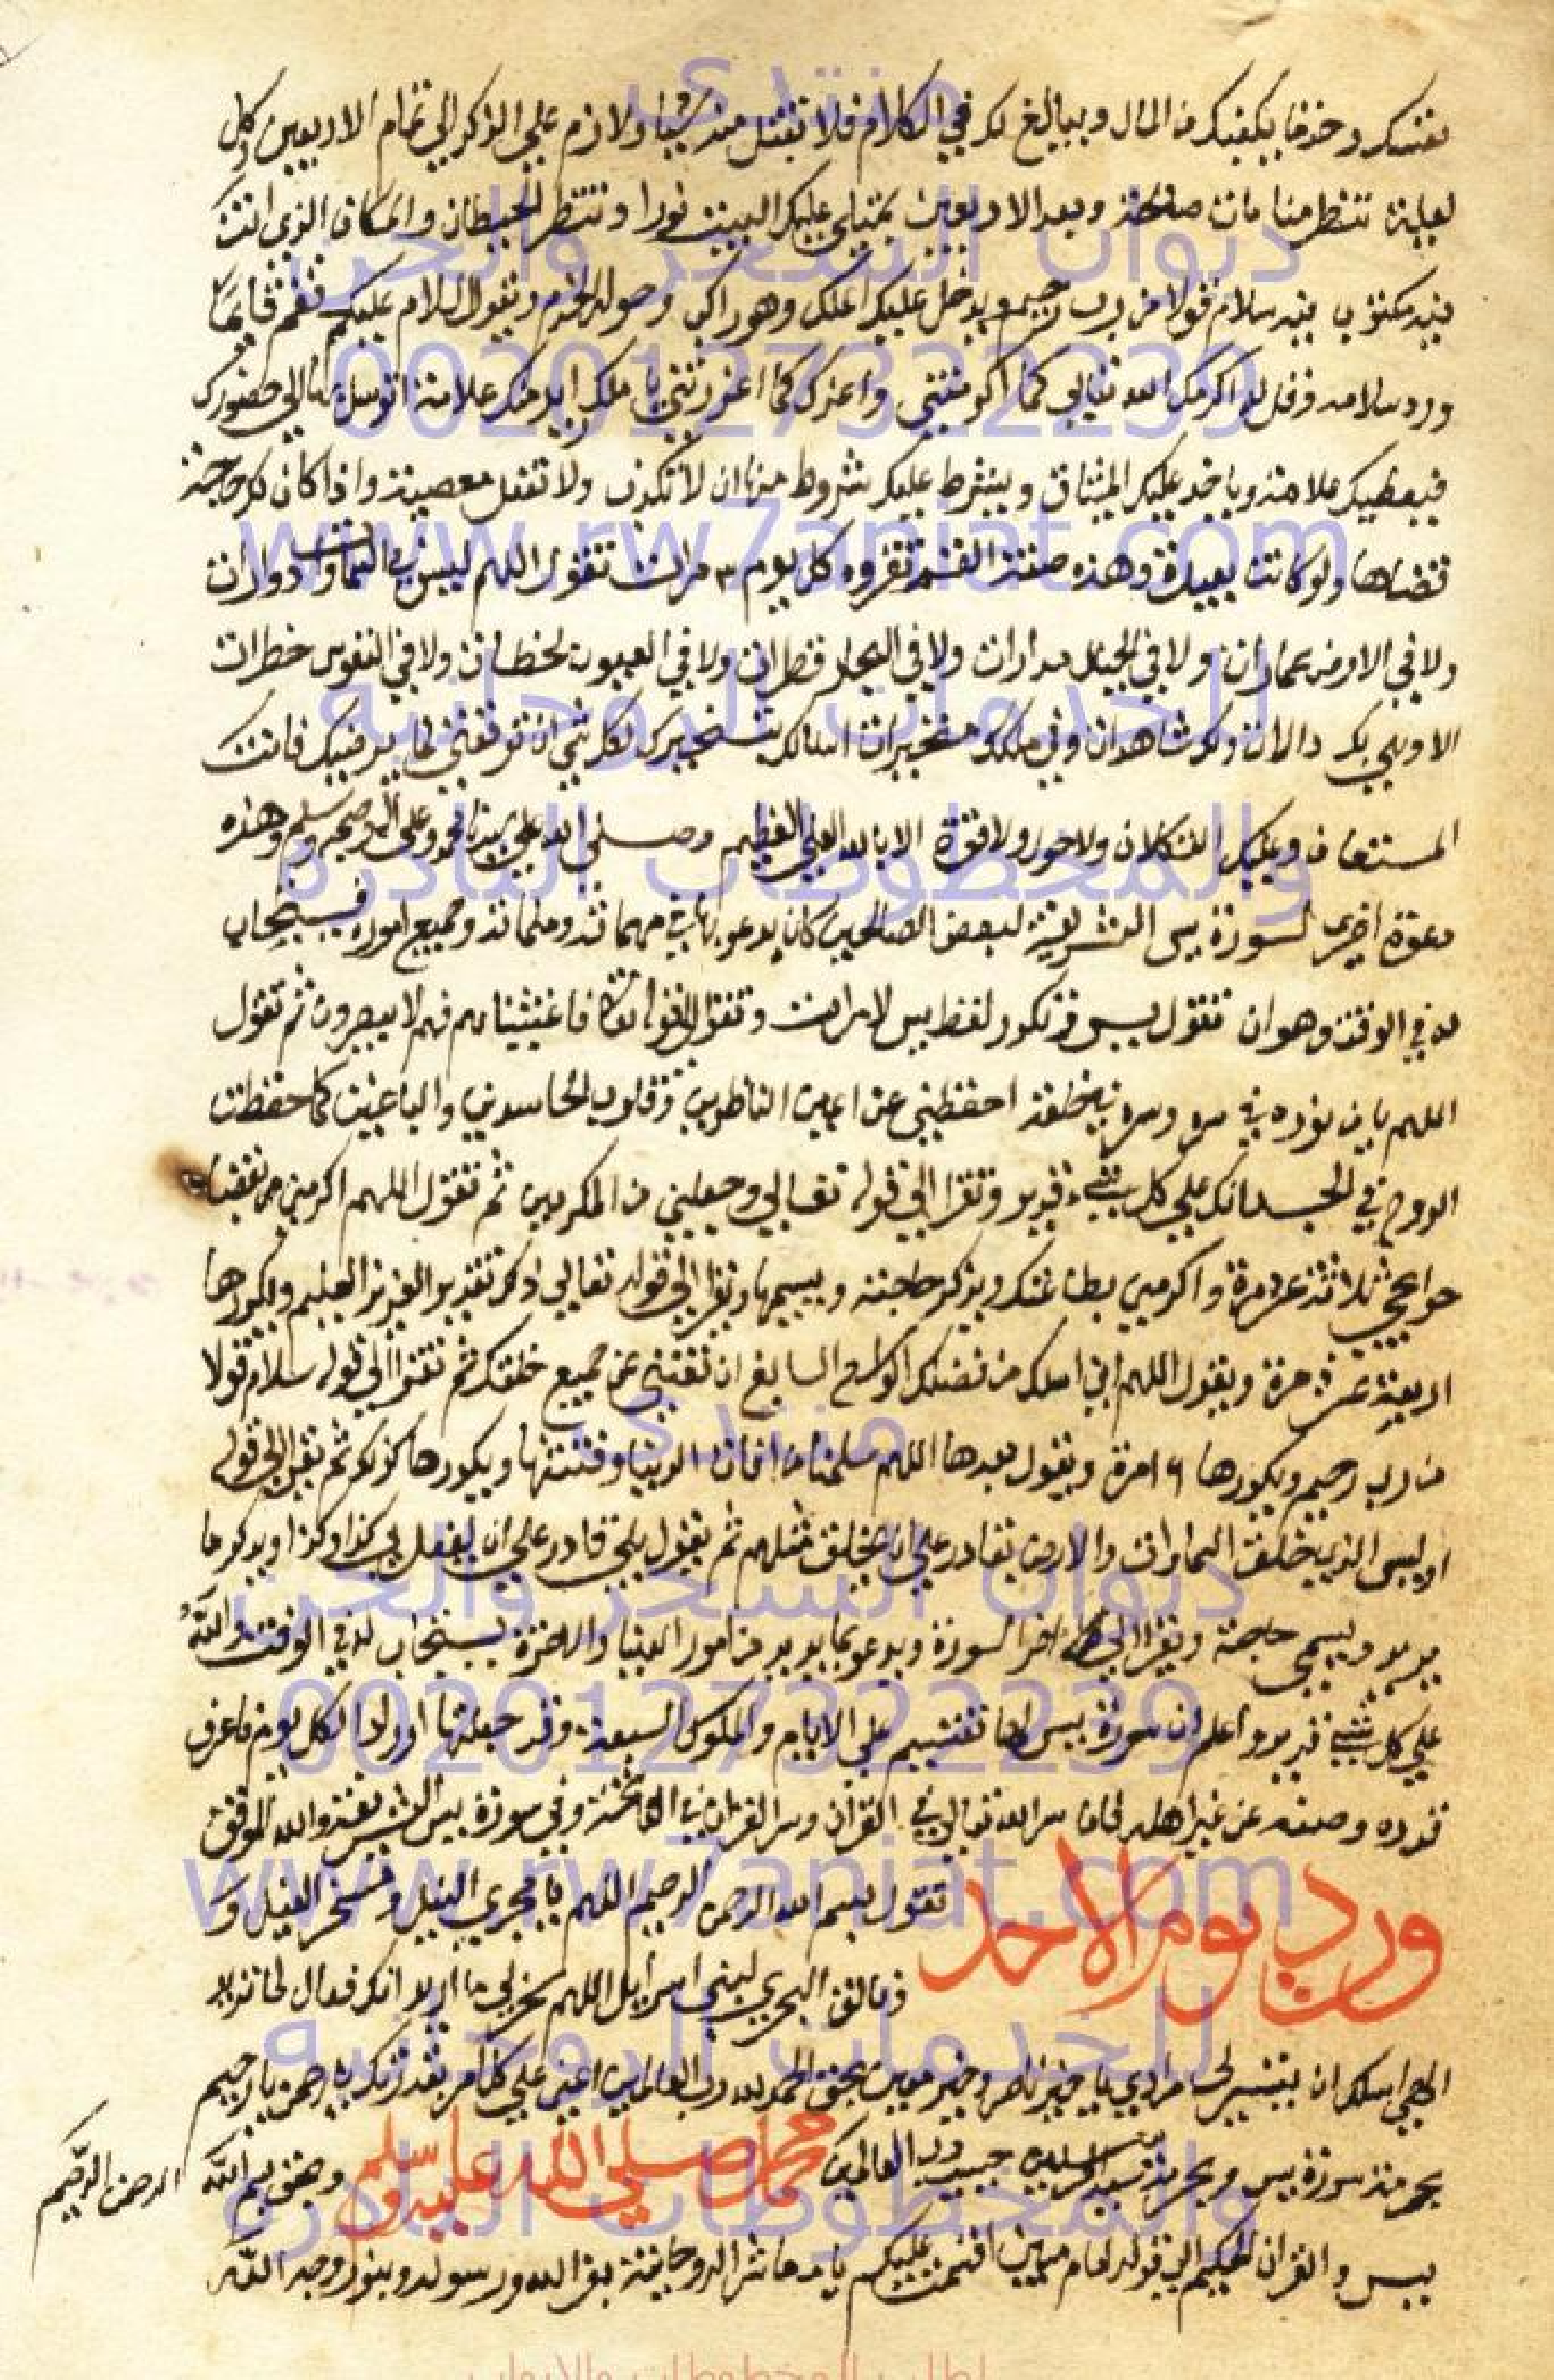 وخذ ما يكفيك من المال ويبالغ لك في الكلام فلا تقبل منه شيئا ولازم علي الذكر الي تمام الاربعين وكل
ليلة تنظر منامات صالحة وبعد الاربعين يمتلي عليك البيت نورا وتنتظر الحيطان والمكان الذي انت
فيه مكتوب فيه سلام قولا من رب رحيم ويدخل عليك الملك وهو راكب وحوله الخدم ويقول السلام عليكم فقم قايما
ورد سلامه وقل له اكرمك الله تعالي كما اكرمتني واعزك كما اعززتني يا ملك اريد منك علامة اتوسل بها الي حضورك
فيعطيك علامة وياخد عليك الميثاق ويشرط عليك شروط منها ان لا تكذب ولا تفعل معصية واذا كان لك حاجة
قضاها ولو كانت بعيدة وهذه صفة القسم تقروه كل يوم ٣ مرات تقول اللهم ليس في السماوات دورات
ولا في الارض عمارات ولا في الجبل مدارات ولا في البحار قطرات ولا في العيون لحظات ولا في النفوس خطرات
الا وهي بك دالات ولك شاهدات وفي ملكك متحيرات اسالك بتسخيرك لكل شي ان توفقني لما يرضيك فانت
المستعان وعليك التكلان ولا حول ولا قوة الا بالله العلي العظيم وصلي الله علي سيدنا محمد وعلي اله وصحبه وسلم وهذه
دعوة اخري لسورة يس الشريفة لبعض الصالحين كان يدعو بها في مهماته وملماته وجميع اموره فيستجاب
له في الوقت وهو ان تقول يس وتكرر لفظ يس مرات وتقرا الي قوله تعالي فاغشيناهم فهم لا يبصرون ثم تقول
اللهم يا من نوره في سره وسره في خلقه احفظني عن اعين الناظرين وقلوب الحاسدين والباغين كما حفظت
الروح في الجسد انك علي كل شيء قدير وتقرا الي قوله تعالي وجعلني من المكرمين ثم تقول اللهم اكرمني بقضاء
حوايجي ثلاثة عشر مرة واكرمني بطاعتك ويذكر حاجته ويسميها ويقرا الي قوله تعالي ذلك تقدير العزيز العليم ويكررها
اربعة عشر مرة ويقول اللهم اني اسلك من فضلك الواسع السابغ ان تغنيني عن جميع خلقك ثم تقرا الي قوله سلام قولا
من رب رحيم ويكررها ١٦ مرة ويقول بعدها اللهم سلمنا من افات الدنيا وفتنتها ويكررها كذلك ثم يقرا الي قوله
اوليس الذي خلق السماوات والارض بقادر علي ان يخلق مثلهم ثم يقول بلي قادر علي ان يفعل لي كذا وكذا ويذكر ما
يريد ويسمي حاجته ويقرا الي اخر السورة ويدعو بما يريد من امور الدنيا والاخرة يستجاب له في الوقت والله
علي كل شيء قدير واعلم ان سورة يس لها تقسيم علي الايام والملوك السبعة وقد جعلتها اورادا لكل يوم فاعرف
قدره وصنه عن غير اهله لان سر الله تعالي في القران وسر القران في الفاتحة وفي سورة يس الشريفة والله الموفق
ورد يوم الاحد
تقول بسم الله الرحمن الرحيم اللهم يا مجري النيل ومسخر الفيل و
وفالق البحر لبني اسرائيل اللهم سخر لي ما اريد انك فعال لما تريد
الهي اسلك ان تيسر لي مرادي يا خير ناصر وخير معين بحق الحمد لله رب العالمين اعني علي كل امر بقدرتك يا رحمن يا رحيم
بحرمة سورة يس وبحرمة سيد المرسلين حبيب رب العالمين محمد صلي الله عليه وسلم وبحق بسم الله الرحمن الرحيم
يس والقران الحكيم الي قوله امام مبين اقسمت عليكم يا معاشر الروحانية بعز الله ورسوله وبنور وجه الله
منتدى
ديوان السحر والجن
0020127322239
www.rw7aniat.com
للخدمات الروحانيه
والمخطوطات النادرة
منتدى
ديوان السحر والجن
0020127322239
www.rw7aniat.com
للخدمات الروحانيه
والمخطوطات النادرة